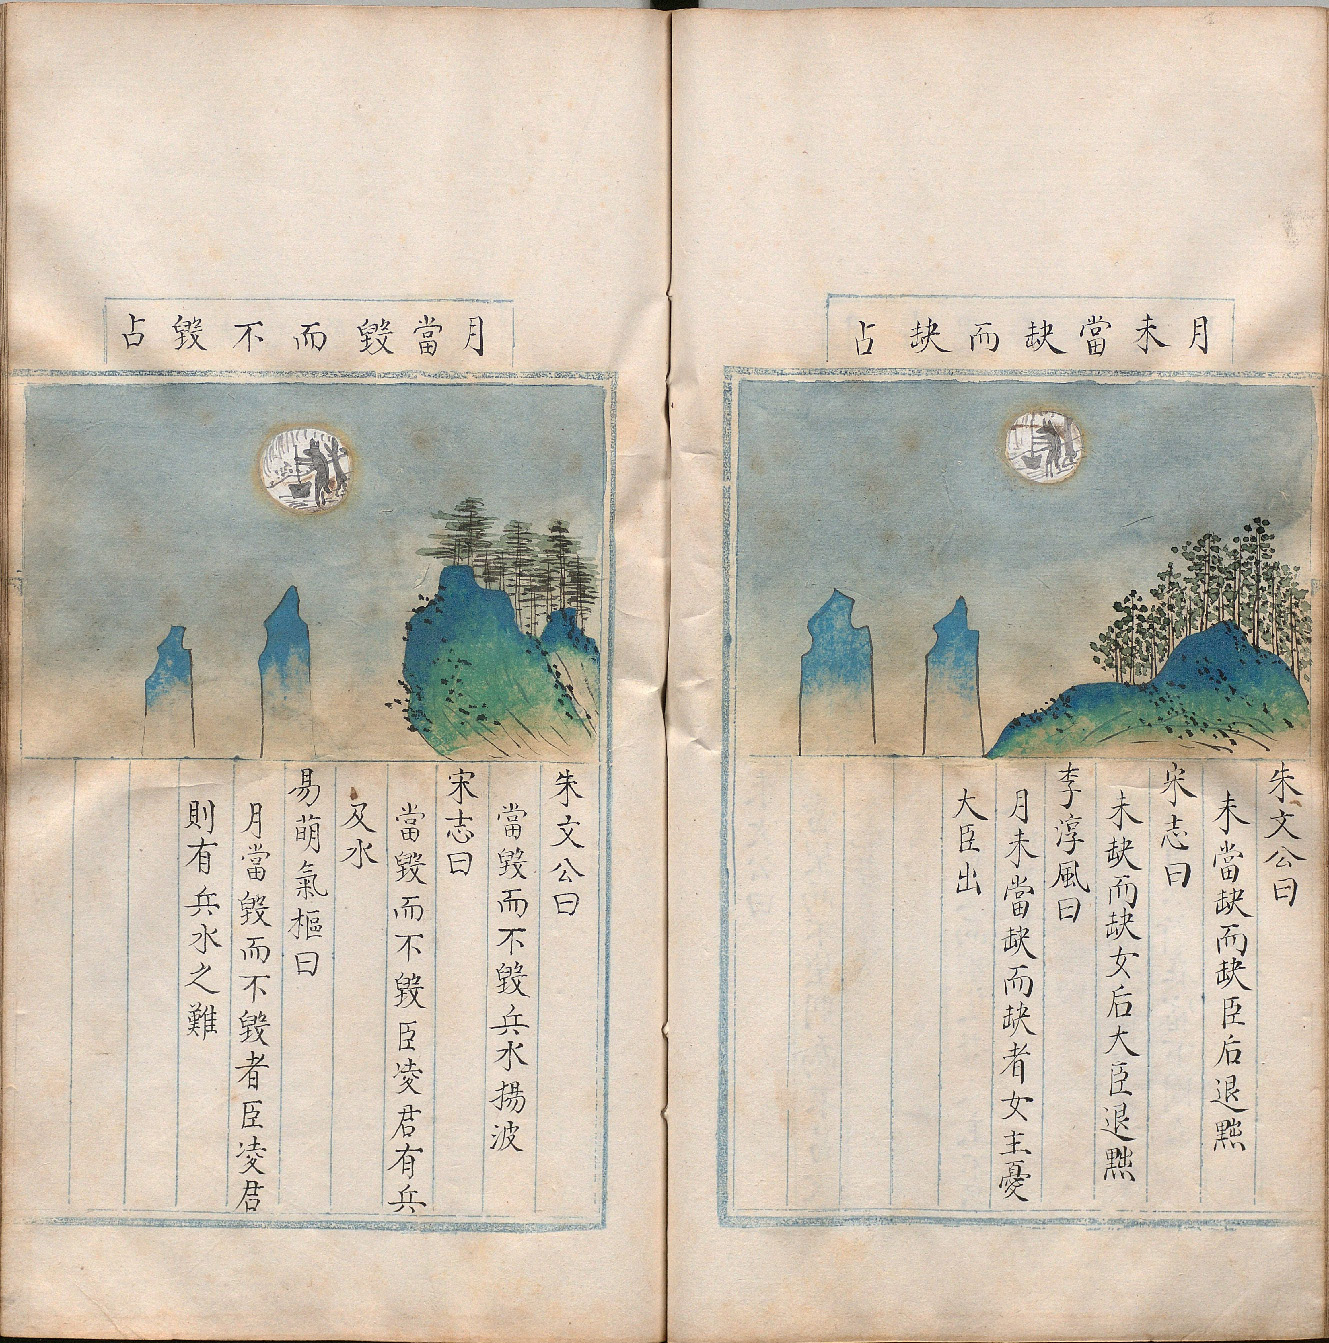 月未當缺而缺占
朱文公曰
未當缺而缺臣后退黜
宋志曰
未缺而缺女后大臣退黜
李淳風曰
月未當缺而缺者女主憂
大臣出
月當毀而不毀占
朱文公曰
當毀而不毀兵水揚波
宋志曰
當毀而不毀臣凌君有兵
及水
易萌氣樞曰
月當毀而不毀者臣凌君
則有兵水之難